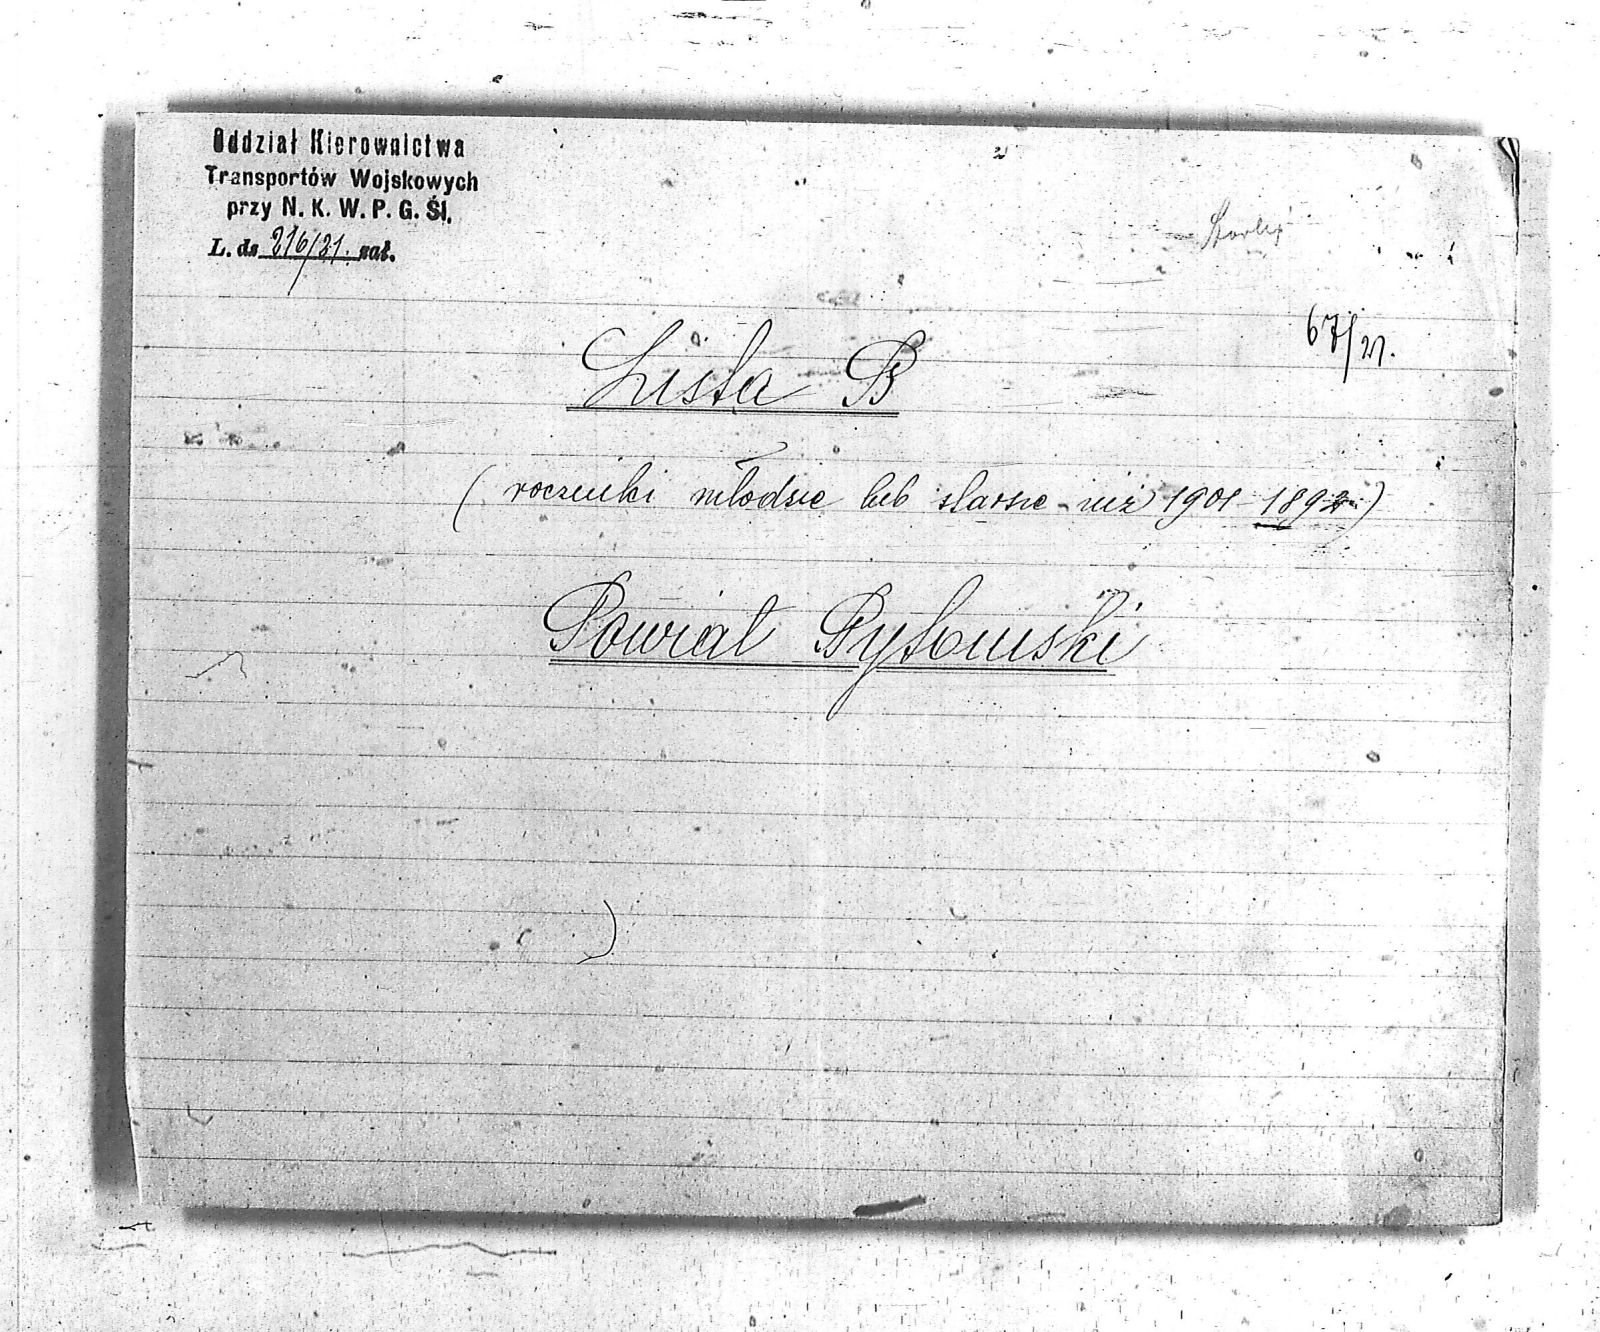 Oddział Kierownictwa
Transportów Wojskowych
przy N. K. W. P. G. Śl.
L. ds 216/21. zał.
67/21.
Lista B
(roczniki młodsze lub starsze niż 1901-1892)
Powiat Rybnicki